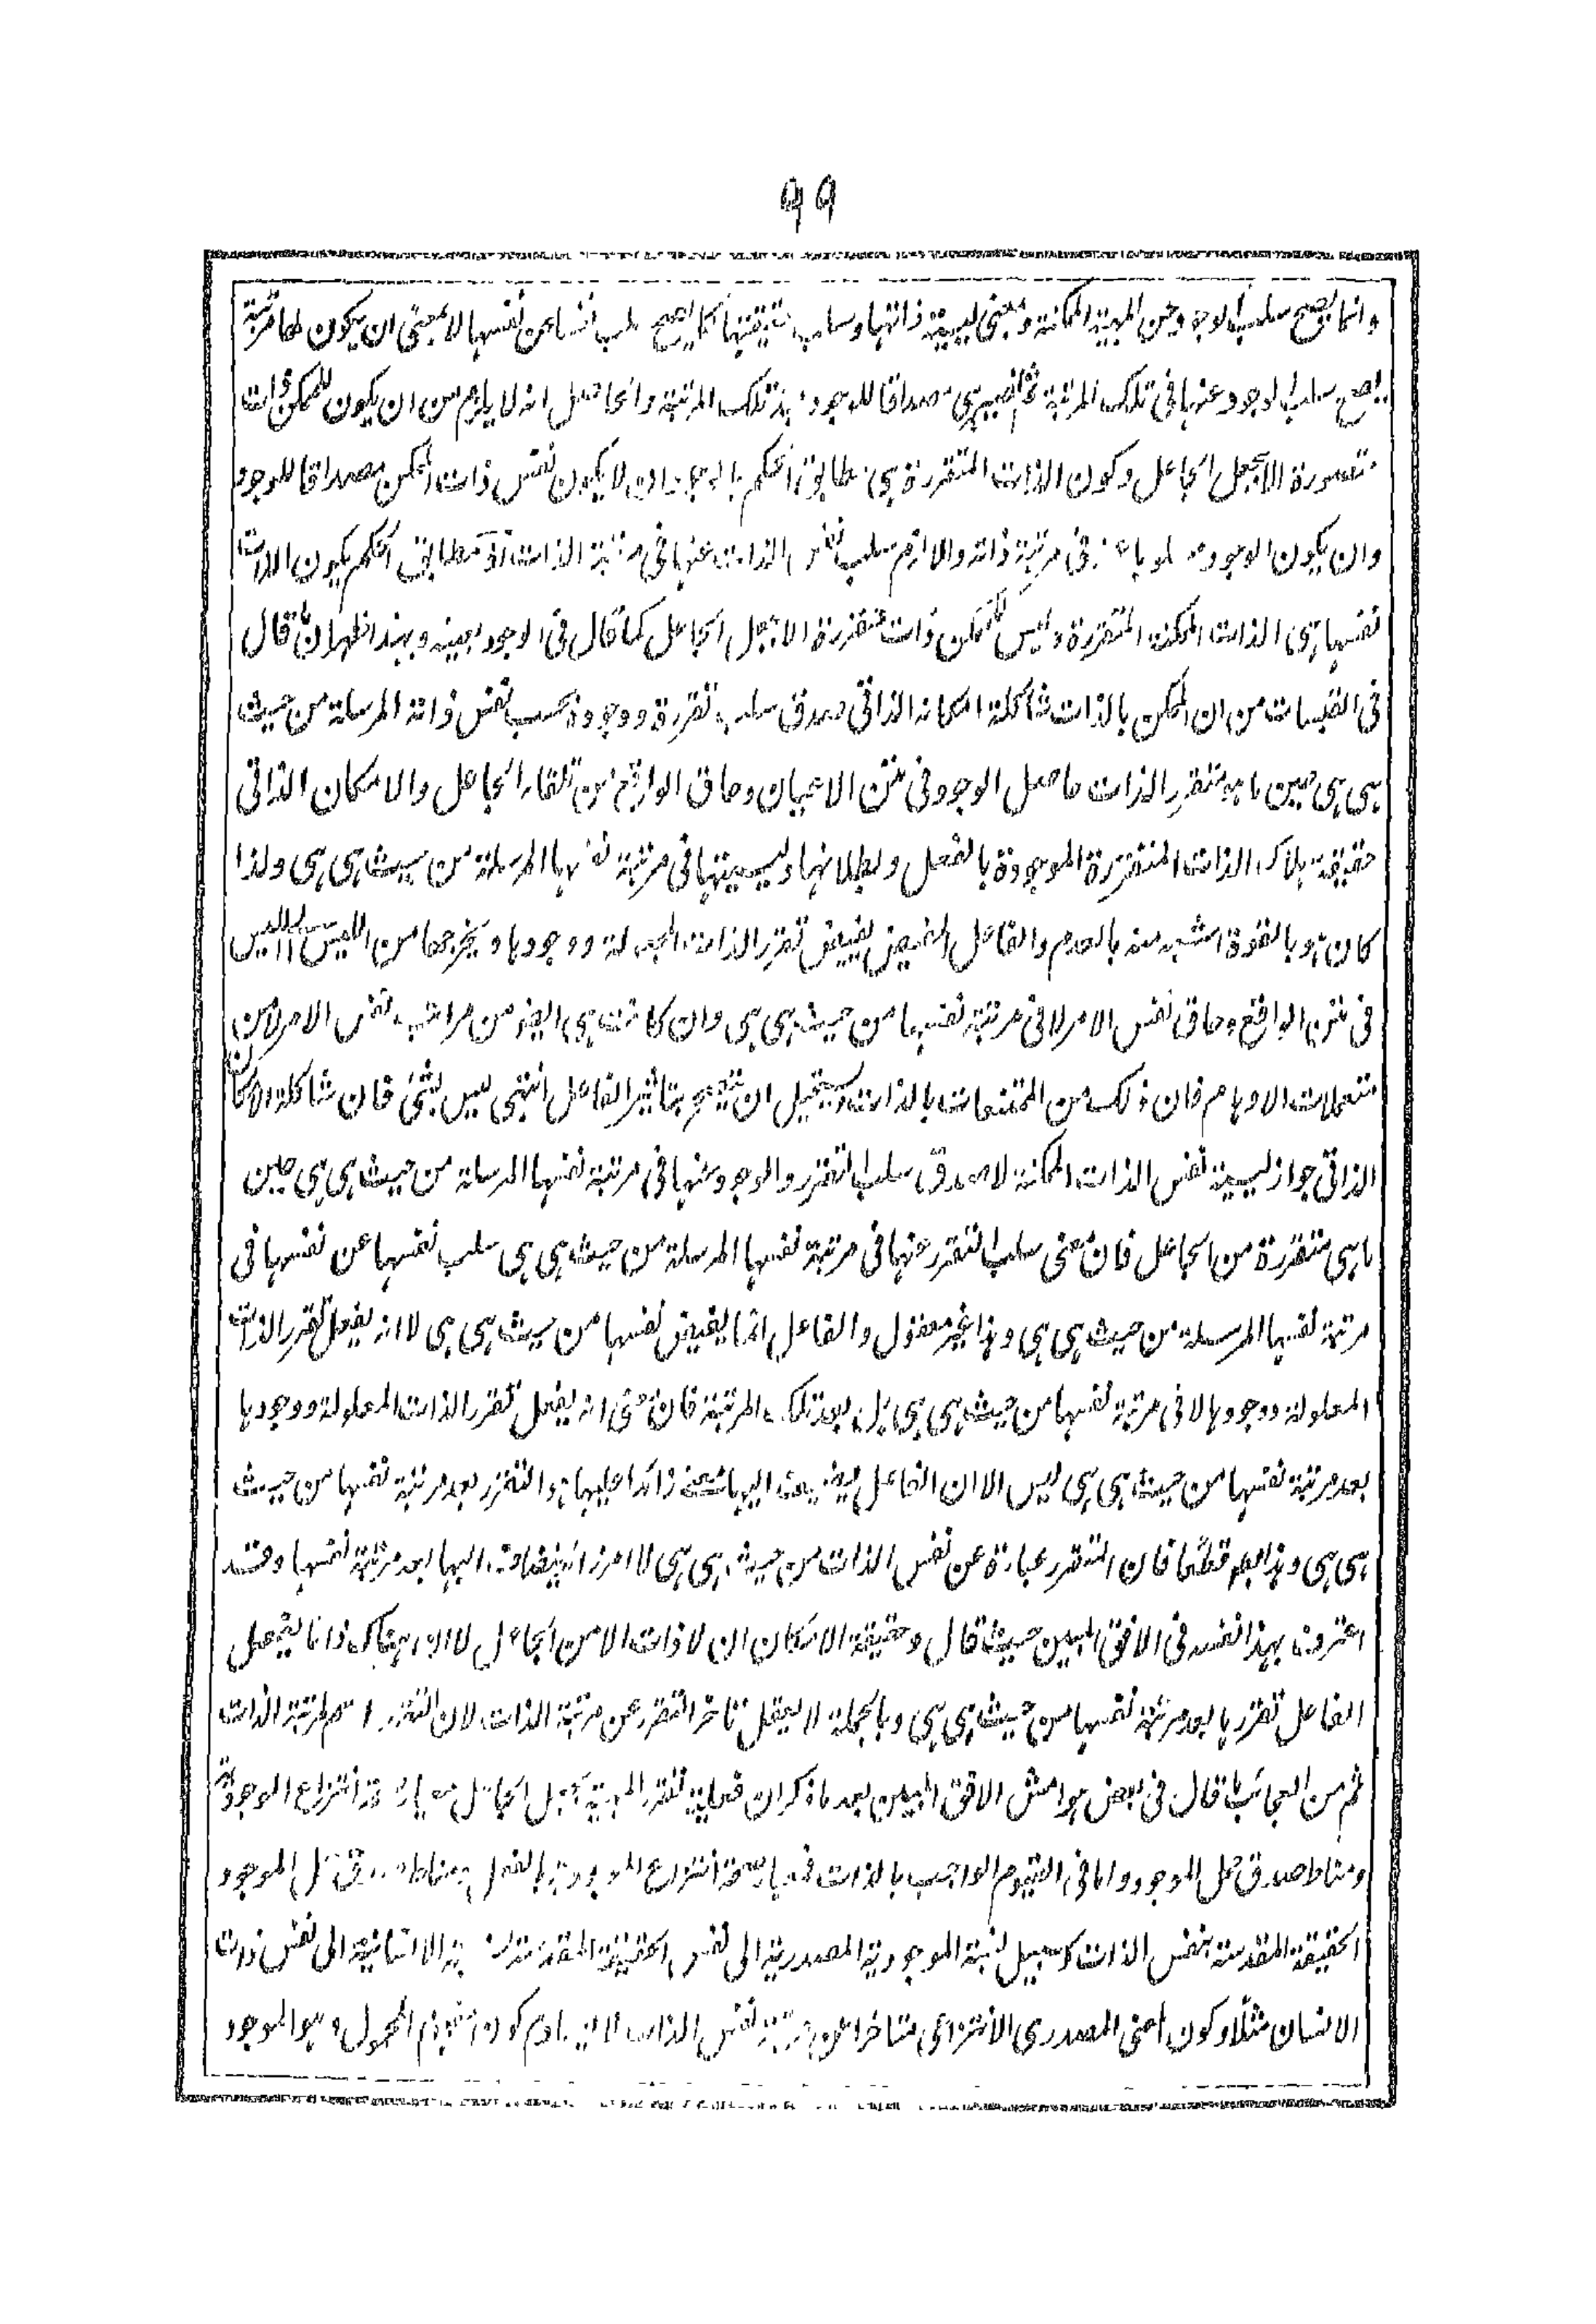 ٩٩
وانما يصح سلب الوجود عن المهية الممكنة بمعنى ليسية ذاتها وسلب حقيقتها كما يصح سلب نفسها عن نفسها لا بمعنى ان يكون لها مرتبة
يصح سلب الوجود عنها فى تلك المرتبة ثم تصير هى مصداقا للوجود بعد تلك المرتبة والحاصل انه لا يلزم من ان يكون للممكن ذات
متصورة الا بجعل الجاعل وكون الذات المتقررة هى مطابق الحكم بالوجود ان لا يكون نفس ذات الممكن مصداقا للوجود
وان يكون الوجود مسلوبا عنه فى مرتبة ذاته والا لزم سلب نفس الذات عنها فى مرتبة الذات اذ مطابق الحكم بكون الذات
نفسها هى الذات الممكنة المتقررة وليس للممكن ذات متقررة الا بجعل الجاعل كما قال فى الوجود بعينه وبهذا ظهر ان ما قال
فى القبسات من ان الممكن بالذات شاكلة امكانه الذاتى صدق سلب تقرره ووجوده بحسب نفس ذاته المرسلة من حيث
هى هى حين ما هو متقرر الذات حاصل الوجود فى متن الاعيان وحاق الواقع من تلقاء الجاعل والامكان الذاتى
حقيقة هلاك الذات المتقررة الموجودة بالفعل وبطلانها وليسيتها فى مرتبة نفسها المرسلة من حيث هى هى ولذا
كان هو بالقوة اشبه منه بالعدم والفاعل المفيض يفيض تقرر الذات المجعولة ووجودها ويخرجها من الليس الى الليس
فى متن الواقع وحاق نفس الامر لا فى مرتبة نفسها من حيث هى هى وان كانت هى ايضا من مراتب نفس الامر لا من
تعملات الاوهام فان ذلك من الممتنعات بالذات ويستحيل ان يتصحح بتاثير الفاعل انتهى ليس بشئ فان شاكلة الامكان
الذاتى جواز ليسية نفس الذات الممكنة لا صدق سلب التقرر والوجود عنها فى مرتبة نفسها المرسلة من حيث هى هى حين
ما هى متقررة من الجاعل فان معنى سلب التقرر عنها فى مرتبة نفسها المرسلة من حيث هى هى سلب نفسها عن نفسها فى
مرتبة نفسها المرسلة من حيث هى هى وهذا غير معقول والفاعل انما يفيض نفسها من حيث هى هى لا انه يفعل تقرر الذات
المعلولة ووجودها لا فى مرتبة نفسها من حيث هى هى بل بعد تلك المرتبة فان معنى انه يفعل تقرر الذات المعلولة ووجودها
بعد مرتبة نفسها من حيث هى هى ليس الا ان الفاعل يضيف اليها معنى زائدا عليها هو التقرر بعد مرتبة نفسها من حيث
هى هى وهذا باطل قطعا فان التقرر عبارة عن نفس الذات من حيث هى هى لا امر زائد ينضاف اليها بعد مرتبة نفسها وقد
اعترف بهذا نفسه فى الافق المبين حيث قال وحقيقة الامكان ان لا ذات الا من الجاعل لا ان هناك ذاتا يفعل
الفاعل تقررها بعد مرتبة نفسها من حيث هى هى وبالجملة لا يعقل تاخر التقرر عن مرتبة الذات لان التقرر اسم لمرتبة الذات
ثم من العجائب ما قال فى بعض هوامش الافق المبين بعد ما ذكر ان فعلية تقرر المهية بجعل الجاعل انتزاع الموجودية
ومناط صدق حمل الموجود واما فى القيوم الواجب بالذات فما به صحة انتزاع الموجودية بالفعل ومناط صدق حمل الموجود
الحقيقة المقدسة بنفس الذات كسبيل نسبة الموجودية المصدرية الى نفس الحقيقة المقدسة نسبة الانسانية الى نفس ذات
الانسان مثلا وكون المعنى المصدرى الانتزاعى متاخرا عن مرتبة نفس الذات لا يصادم كون مفهوم المحمول وهو الموجود